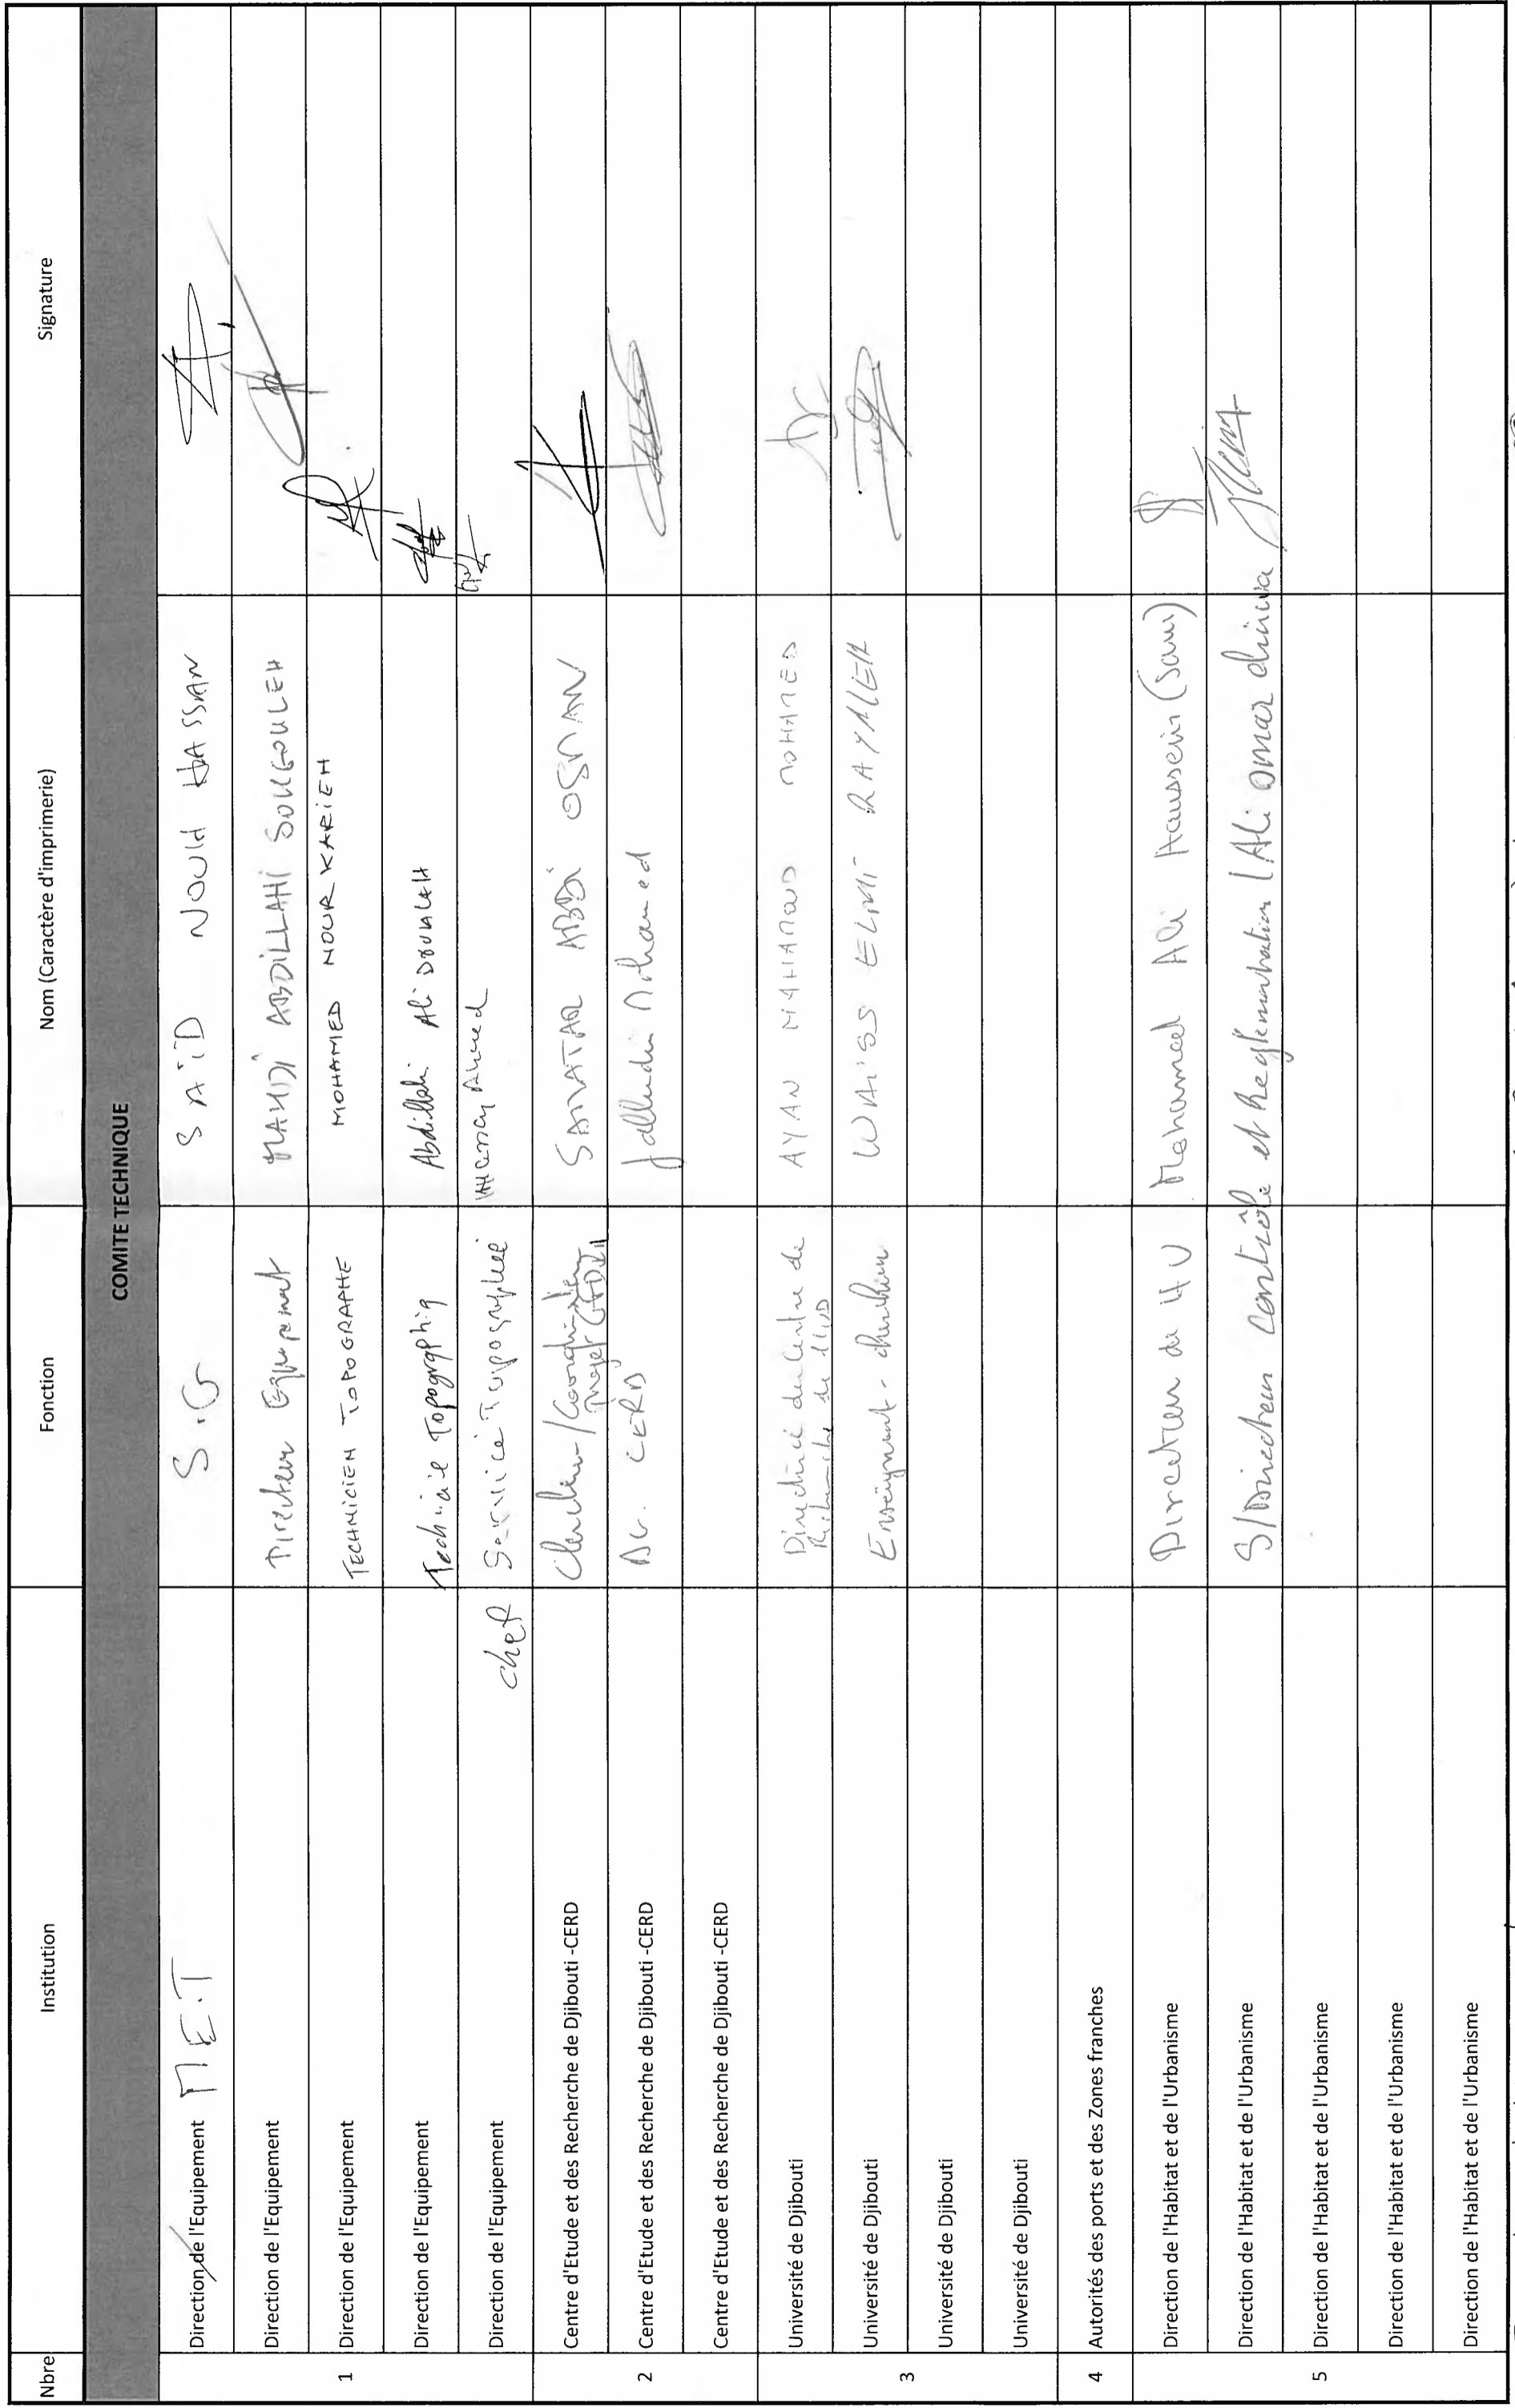 Nbre Institution Fonction Nom (Caractère d'imprimerie) Signature
COMITE TECHNIQUE
Direction de l'Equipement M.E.T S.G SAÏD NOUH HASSAN
Direction de l'Equipement Directeur Equipement MAHDI ABDILLAHI SOUGOULEH
1 Direction de l'Equipement TECHNICIEN TOPOGRAPHE MOHAMED NOUR KARIEH
Direction de l'Equipement Technicie Topographig Abdillahi Ali DOUALEH
Direction de l'Equipement chef Service Topographee Ahmed
Centre d'Etude et des Recherche de Djibouti -CERD Chercheur/Coordinateur Projet SAMATAR ABDI OSMAN
2 Centre d'Etude et des Recherche de Djibouti -CERD CERD Jalludin Mohamed
Centre d'Etude et des Recherche de Djibouti -CERD
Université de Djibouti Directrice du Centre de
Recherche de l'IUD AYAN MAHAMOUD MOHAMED
3 Université de Djibouti Enseignant-chercheur WAISS ELMI RAYALEH
Université de Djibouti
Université de Djibouti
4 Autorités des ports et des Zones franches
Direction de l'Habitat et de l'Urbanisme Directeur de HU Mohamed Ali Houssein (Sam)
Direction de l'Habitat et de l'Urbanisme S/Direction Contrôle et Reglementation (Ali omar
5 Direction de l'Habitat et de l'Urbanisme
Direction de l'Habitat et de l'Urbanisme
Direction de l'Habitat et de l'Urbanisme